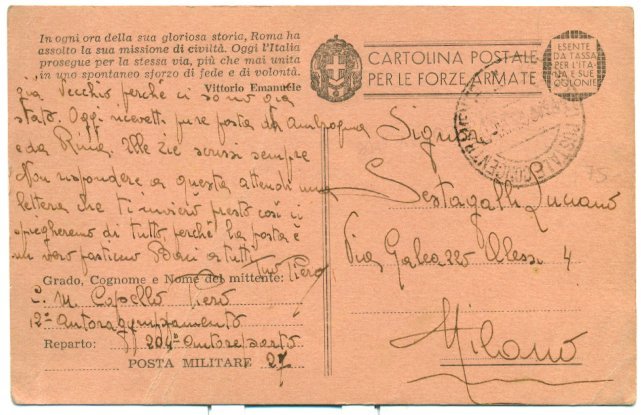 In ogni ora della sua gloriosa storia, Roma ha
assolto la sua missione di civiltà. Oggi l'Italia
prosegue per la stessa via, più che mai unita
in uno spontaneo sforzo di fede e di volontà.
Vittorio Emanuele
già Vecchio perché ci sono già
stato. Oggi ricevetti pure posta da
e da Rina. Alle zie scrissi sempre
Non rispondere a questa attendi una
lettera che ti invierò presto così ci
spiegheremo di tutto perché la posta è
un vero pasticcio Baci a tutti
tuo Piero
Grado, Cognome e Nome del mittente:
C. M. Capello Piero
12° Autoraggruppamento
Reparto: 204° Autoreparto
POSTA MILITARE 27
CARTOLINA POSTALE
PER LE FORZE ARMATE
ESENTE
DA TASSA
PER L'ITA-
LIA E SUE
COLONIE
POSTALE CONCENTR
Signor
Sestagalli Luciano
Via Galeazzo Alessi 4
Milano
75